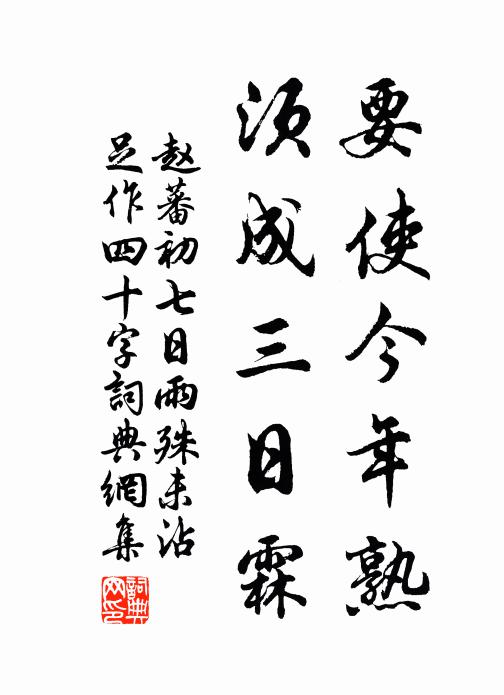 要使今年熟
須成三日霖
赵蕃初七日雨殊未沾
足作四十字詞典網集